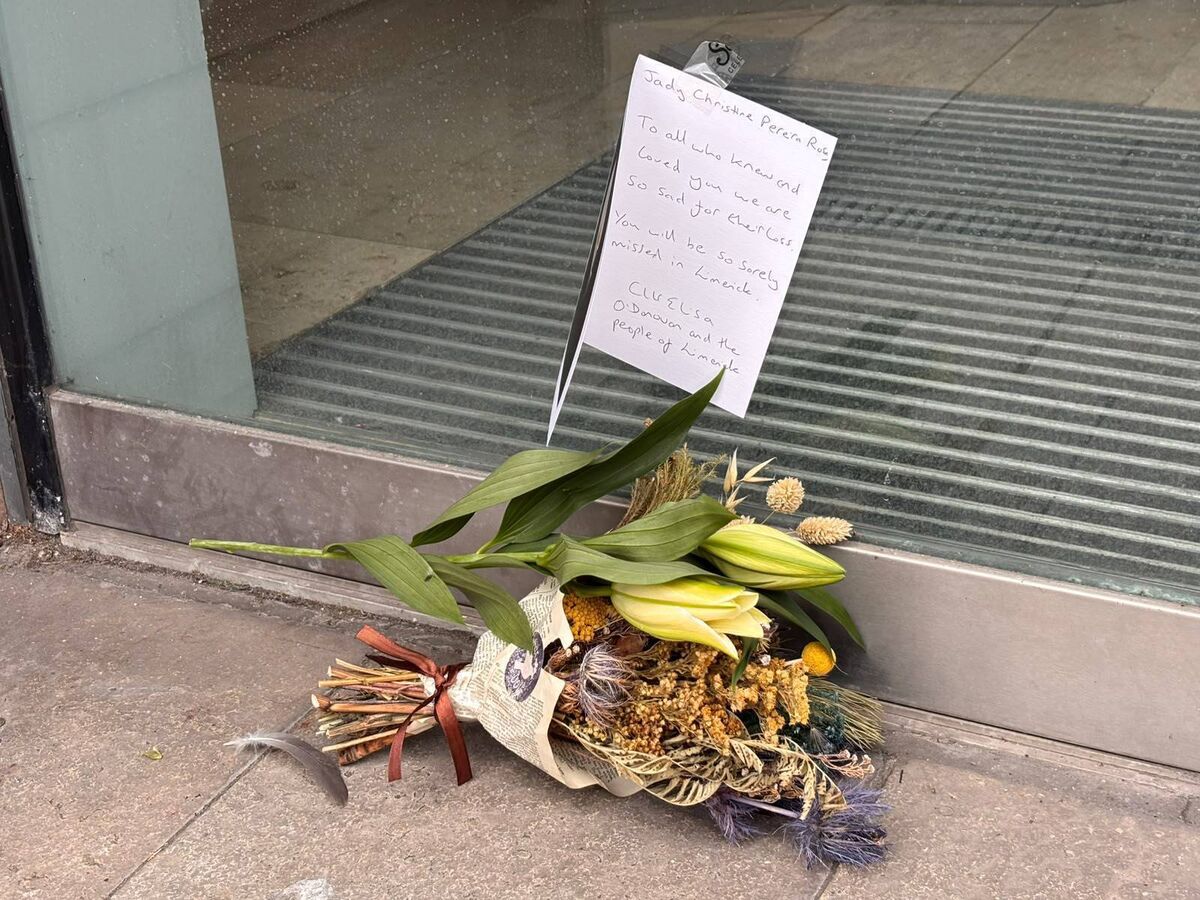 Jady Christine Perera Ruiz
To all who knew and
loved you we are
so sad for their loss.
You will be so sorely
missed in Limerick.
Elsa
O'Donovan and the
people of Limerick